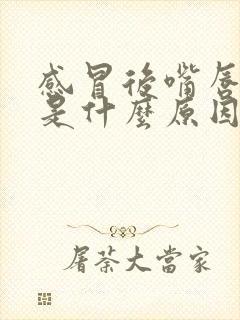 感冒後嘴唇
是什麼原因
屠萘大當家